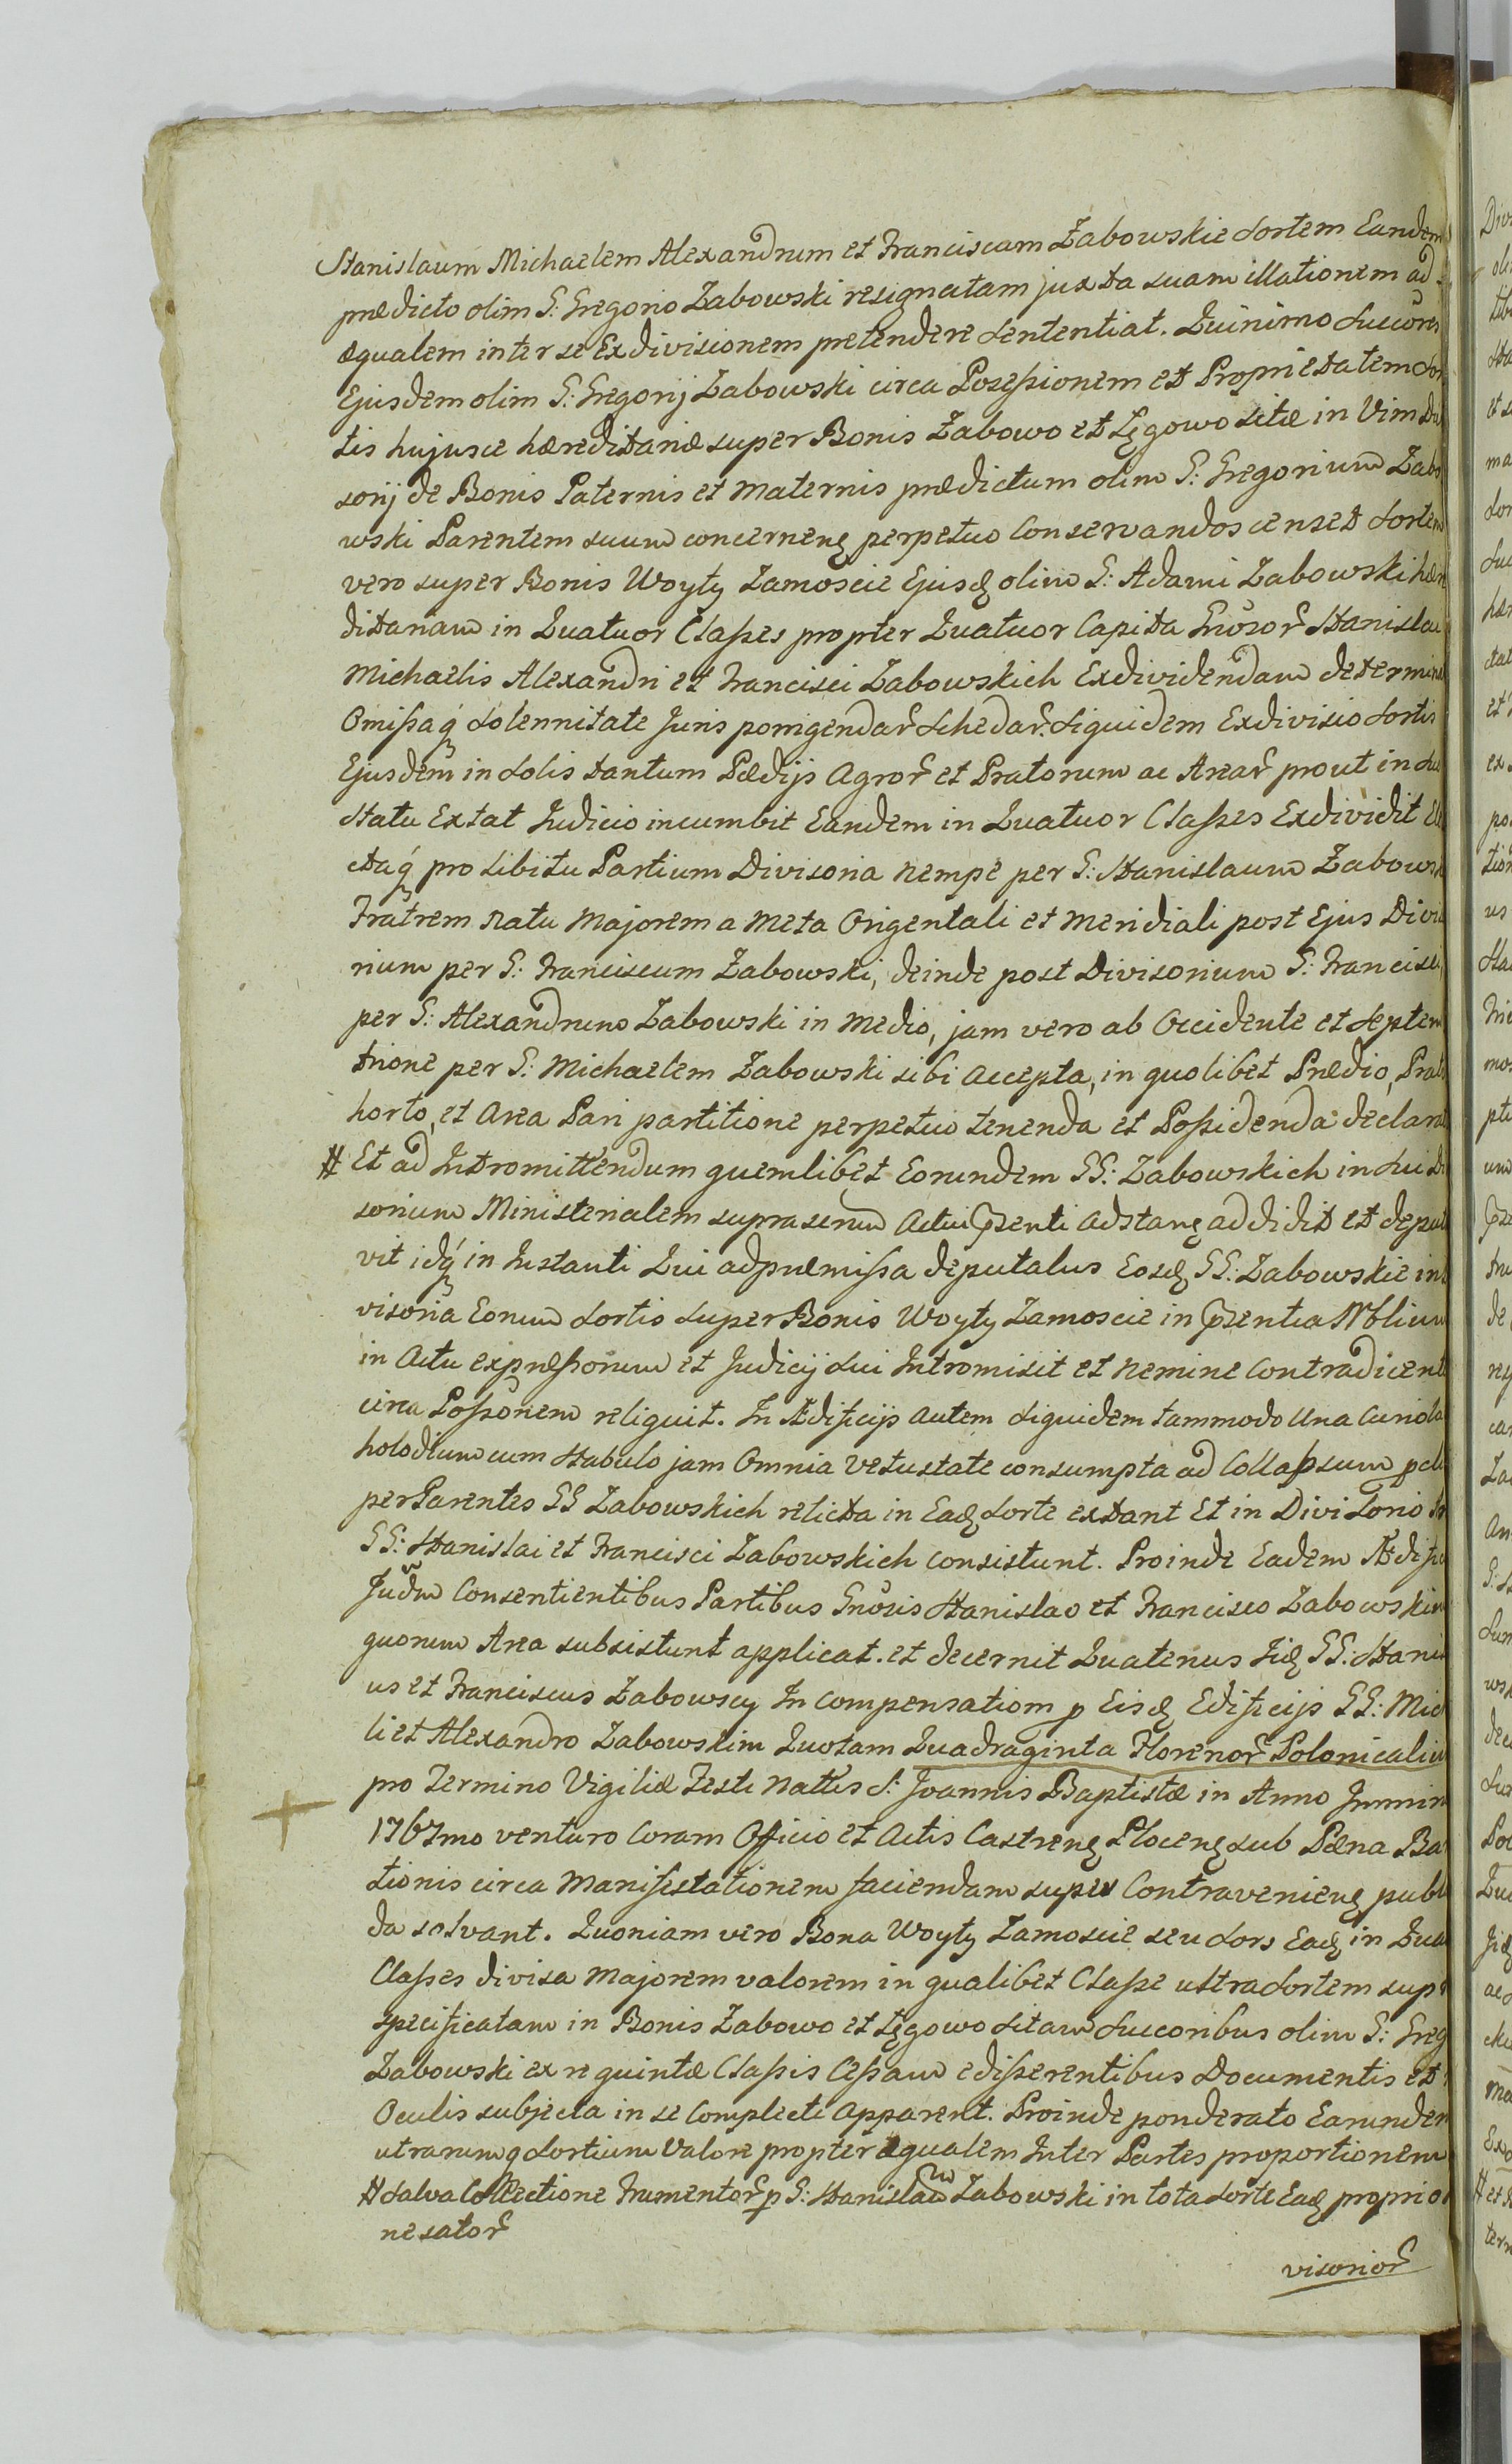 Stanislaum Michaelem Alexandrum et Franciscum Zabowskie Sortem Eandem
prædicto olim G: Gregorio Zabowski resignatam juxta suam illationem ad
æqualem inter se Exdivisionem pretendere sententiat. Quinimo Succores
Ejusdem olim G: Gregorij Zabowski circa Posessionem et Proprietatem Sor
tis hujusce hæreditariæ super Bonis Zabowo et Łęgowo sitæ in Vim Di
sorij de Bonis Paternis et Maternis prædictum olim G: Gregorium Zabo
wski Parentem suum concerneñ perpetuo Conservandos censet Sortem
vero super Bonis Woyty Zamoscie Ejusd olim G: Adami Zabowski hær
ditariam in Quatuor Classes propter Quatuor Capita Gnosor Stanislai
Michaelis Alexandri et Francisci Zabowskich Exdividendam determin
Omissaq Solennitate Juris porrigendar Schedar. Siquidem Exdivisio Sortis
Ejusdem in Solis tantum Prædijs Agror et Pratorum ac Arear prout in Suo
Statu Extat Judicio incumbit Eandem in Quatuor Classes Exdividit Ele
ctaq pro Libitu Partium Divisoria nempe per G: Stanislaum Zabows
Fratrem natu Majorem a Meta Origentali et Meridiali post Ejus Divi
rium per G: Franciscum Zabowski, deinde post Divisorium G: Francisci
per G: Alexandrum Zabowski in Medio, jam vero ab Occidente et Septem
trione per G: Michaelem Zabowski sibi Accepta, in quolibet Prædio, Prato
horto, et Area Pari partitione perpetuo tenenda et Possidenda declarat
# Et ad Intromittendum quemlibet Eorundem GG: Zabowskich in Sui Di
sorium Ministerialem suprascrum Actui Psenti Adstañ addidit et deputa
vit idq in Instanti Qui ad præmissa deputatus Eosd GG: Zabowskie in
visoria Eorum Sortis super Bonis Woyty Zamoscie in Psentia Nblium
in Actu expressorum et Judicij Sui Intromisit et Nemine Contradicent
circa Possonem reliquit. In Ædificijs Autem Siquidem tammodo Una Curiola
holodium cum Stabulo jam Omnia Vetustate consumpta ad Collapsum
per Parentes GG Zabowskich relicta in Ead Sorte extant Et in Divisorio
GG: Stanislai et Francisci Zabowskich consistunt. Proinde Eadem Ædifi
Judm Consentientibus Partibus Gnosis Stanislao et Francisco Zabowskim
quorum Area subsistunt applicat. et decernit Quatenus Iid GG: Stanis
us et Franciscus Zabowscy In Compensatiom p Eisd Edificijs GG: Mich
li et Alexandro Zabowskim Quotam Quadraginta Florenor Polonicaliu
pro Termino Vigiliæ Festi Nattis S: Joannis Baptistæ in Anno Immin
1767mo venturo Coram Officio et Actis Castreñ Plocen sub Pæna Ba
tionis circa Manifestationem faciendam super Contravenieñ publ
da solvant. Quoniam vero Bona Woyty Zamoscie seu Sors Ead in Qua
Classes divisa Majorem valorem in qualibet Classe ultra Sortem supr
specificatam in Bonis Zabowo et Łęgowo Sitam Succoribus olim G: Greg
Zabowski ex re quintæ Classis Cessam edisserentibus Documentis et
Oculis subjecta in se Complecti apparent. Proinde ponderato Earunden
utrarumq Sortium Valore propter æqualem Inter Partes proportionem
# Salva Collectione Frumentor p G: Stanislaum Zabowski in tota Sorte Ead proprio
ne sator
visorior